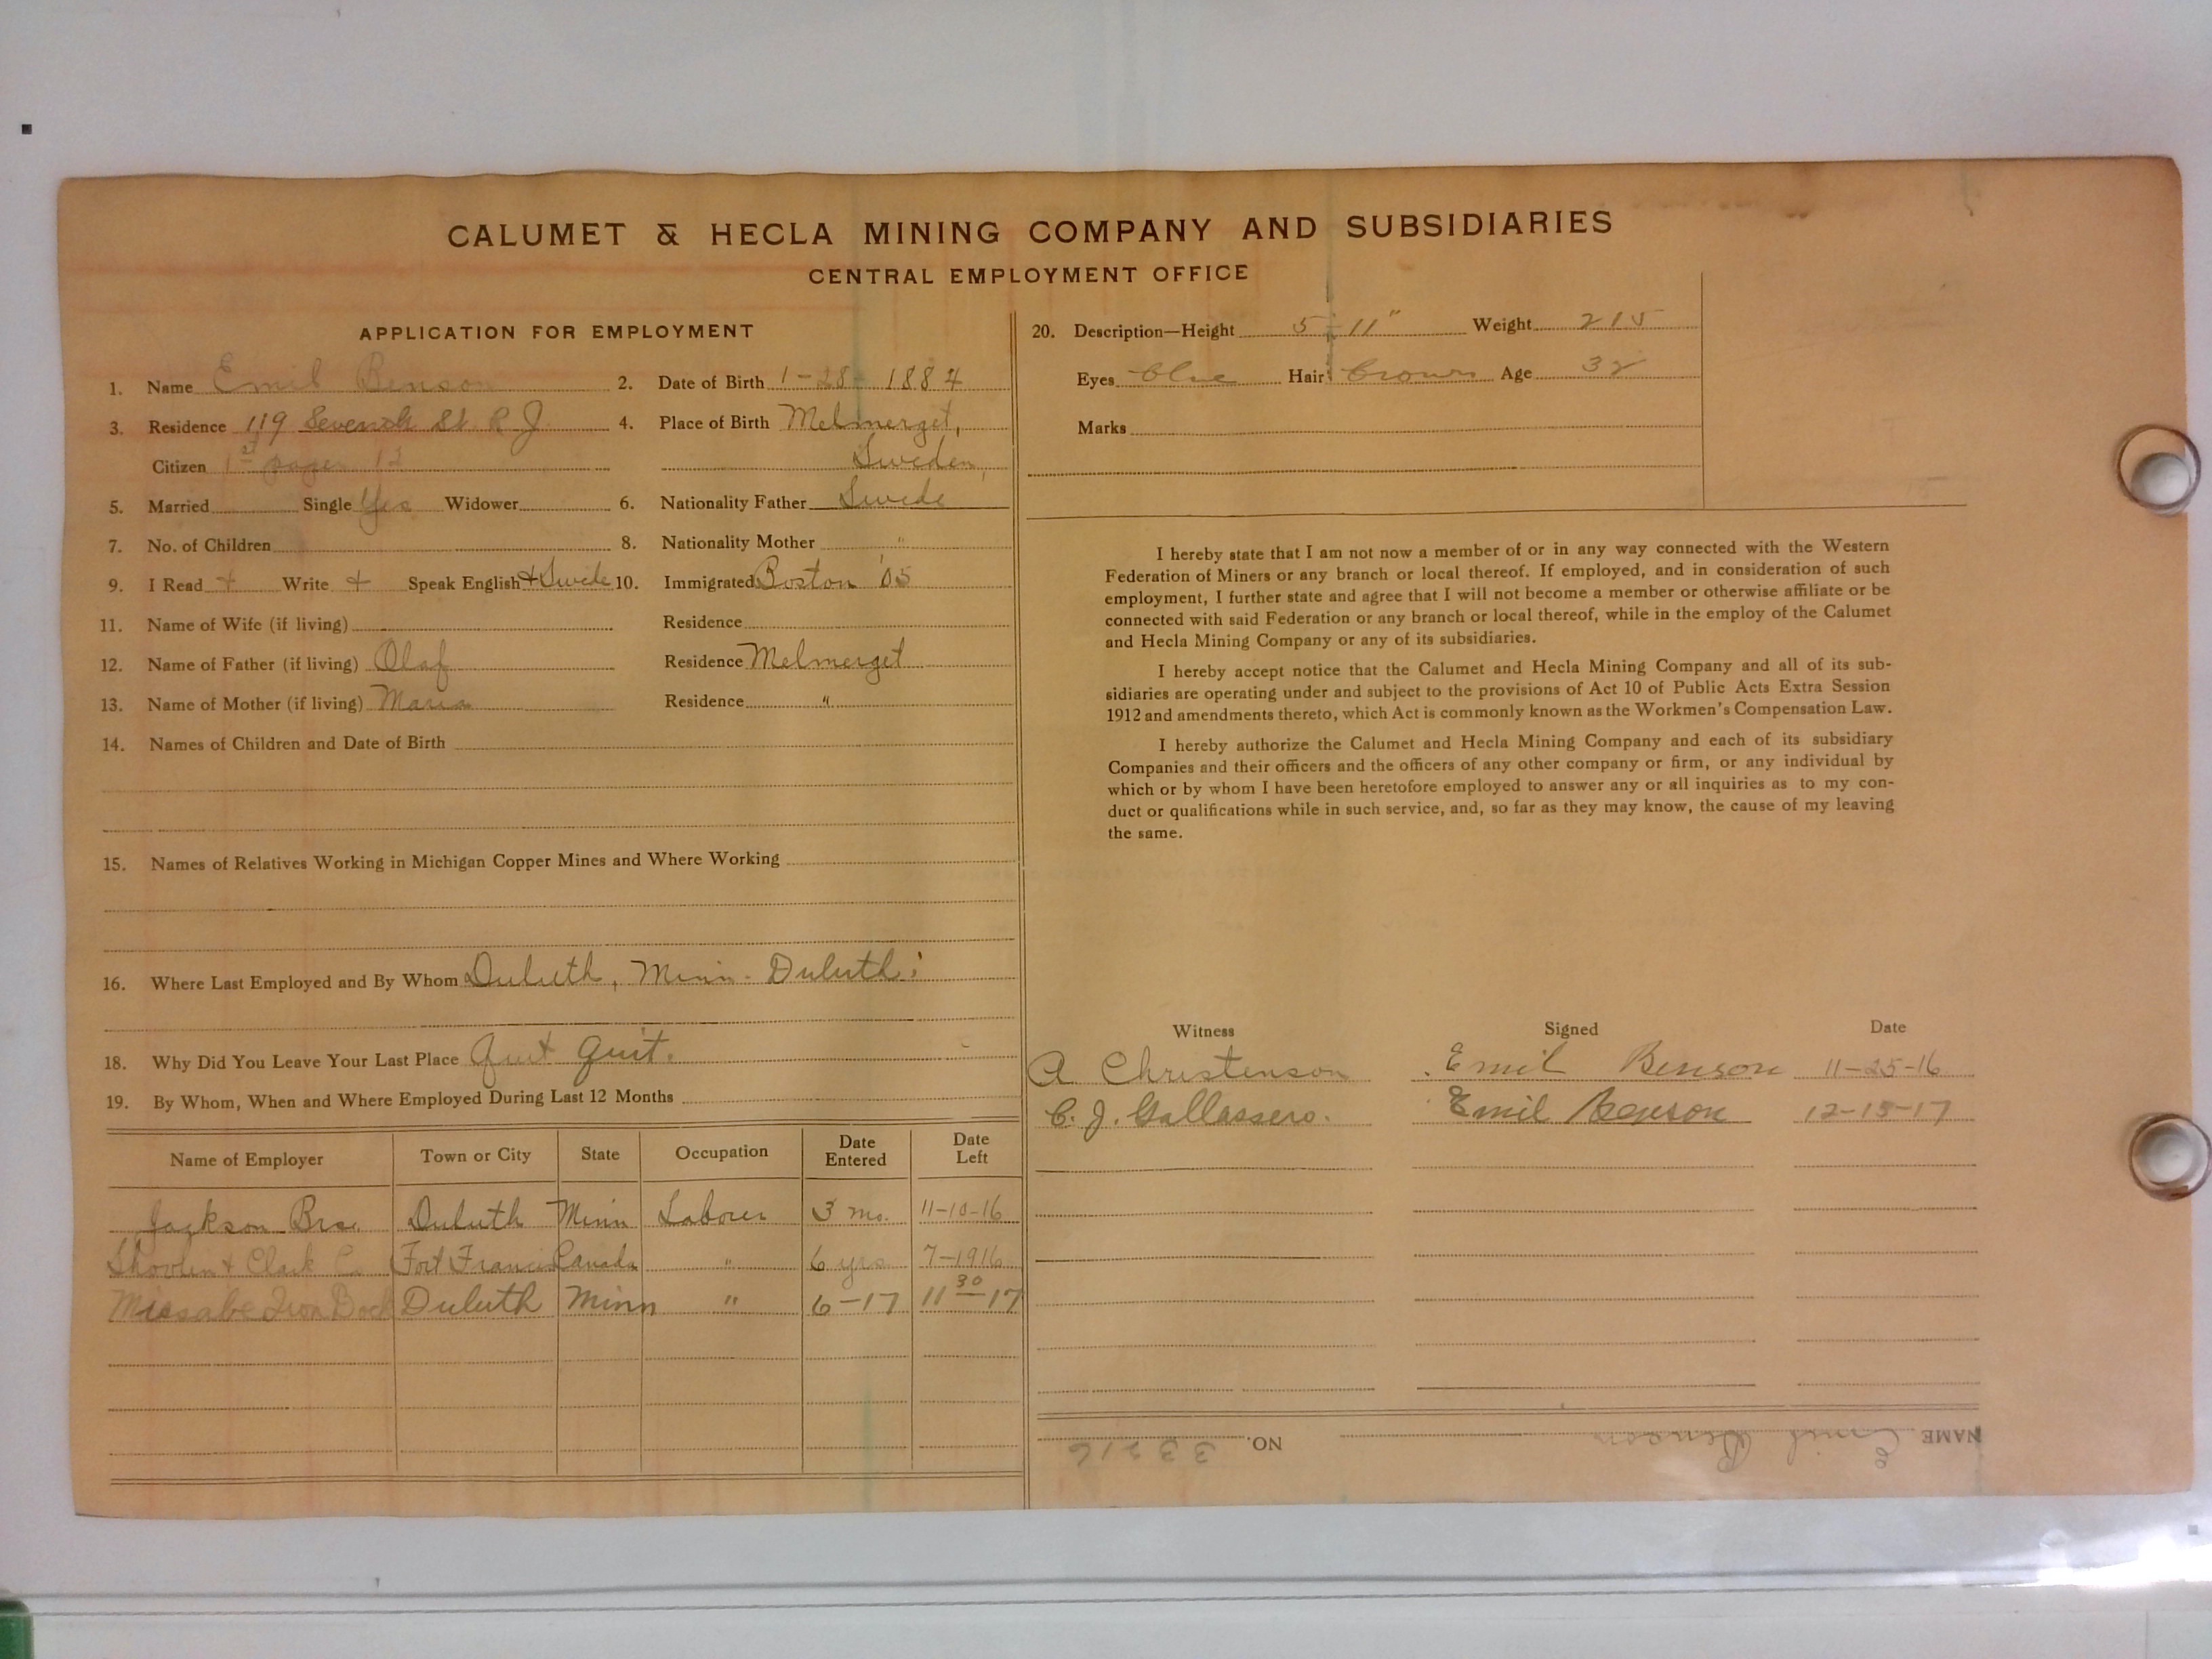 CALUMET & HECLA MINING COMPANY AND SUBSIDIARIES
CENTRAL EMPLOYMENT OFFICE
APPLICATION FOR EMPLOYMENT
1. Name Emil Benson 2. Date of Birth 1-28-1884
3. Residence 119 Seventh St. R J 4. Place of Birth Melmerget,
Citizen 1st paper 12 Sweden,
5. Married Single Yes Widower 6. Nationality Father Swede
7. No. of Children 8. Nationality Mother "
9. I Read + Write + Speak English + Swede 10. Immigrated Boston '05
11. Name of Wife (if living) Residence
12. Name of Father (if living) Olaf Residence Melmerget
13. Name of Mother (if living) Maria Residence "
14. Names of Children and Date of Birth
15. Names of Relatives Working in Michigan Copper Mines and Where Working
16. Where Last Employed and By Whom Duluth, Minn. Duluth.
18. Why Did You Leave Your Last Place Quit Quit.
19. By Whom, When and Where Employed During Last 12 Months
Name of Employer Town or City State Occupation Date Entered Date Left
Jackson Bros. Duluth Minn Laborer 3 mo. 11-10-16
& Clark Co Fort Francis Canada " 6 yrs. 7-1916
Missabe Iron Duluth Minn " 6-17 11-30-17
20. Description—Height 5-11" Weight 215
Eyes Blue Hair Brown Age 32
Marks
I hereby state that I am not now a member of or in any way connected with the Western
Federation of Miners or any branch or local thereof. If employed, and in consideration of such
employment, I further state and agree that I will not become a member or otherwise affiliate or be
connected with said Federation or any branch or local thereof, while in the employ of the Calumet
and Hecla Mining Company or any of its subsidiaries.
I hereby accept notice that the Calumet and Hecla Mining Company and all of its sub-
sidiaries are operating under and subject to the provisions of Act 10 of Public Acts Extra Session
1912 and amendments thereto, which Act is commonly known as the Workmen's Compensation Law.
I hereby authorize the Calumet and Hecla Mining Company and each of its subsidiary
Companies and their officers and the officers of any other company or firm, or any individual by
which or by whom I have been heretofore employed to answer any or all inquiries as to my con-
duct or qualifications while in such service, and, so far as they may know, the cause of my leaving
the same.
Witness Signed Date
A Christenson Emil Benson 11-25-16
C. J. Gallassero. Emil Benson 12-15-17
NAME Emil Benson NO. 33216